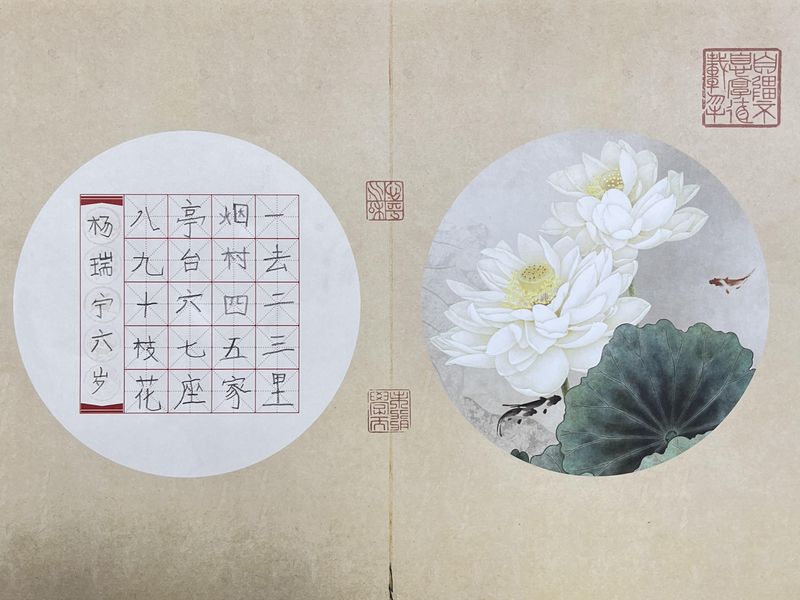 一去二三里
烟村四五家
亭台六七座
八九十枝花
杨瑞宁六岁